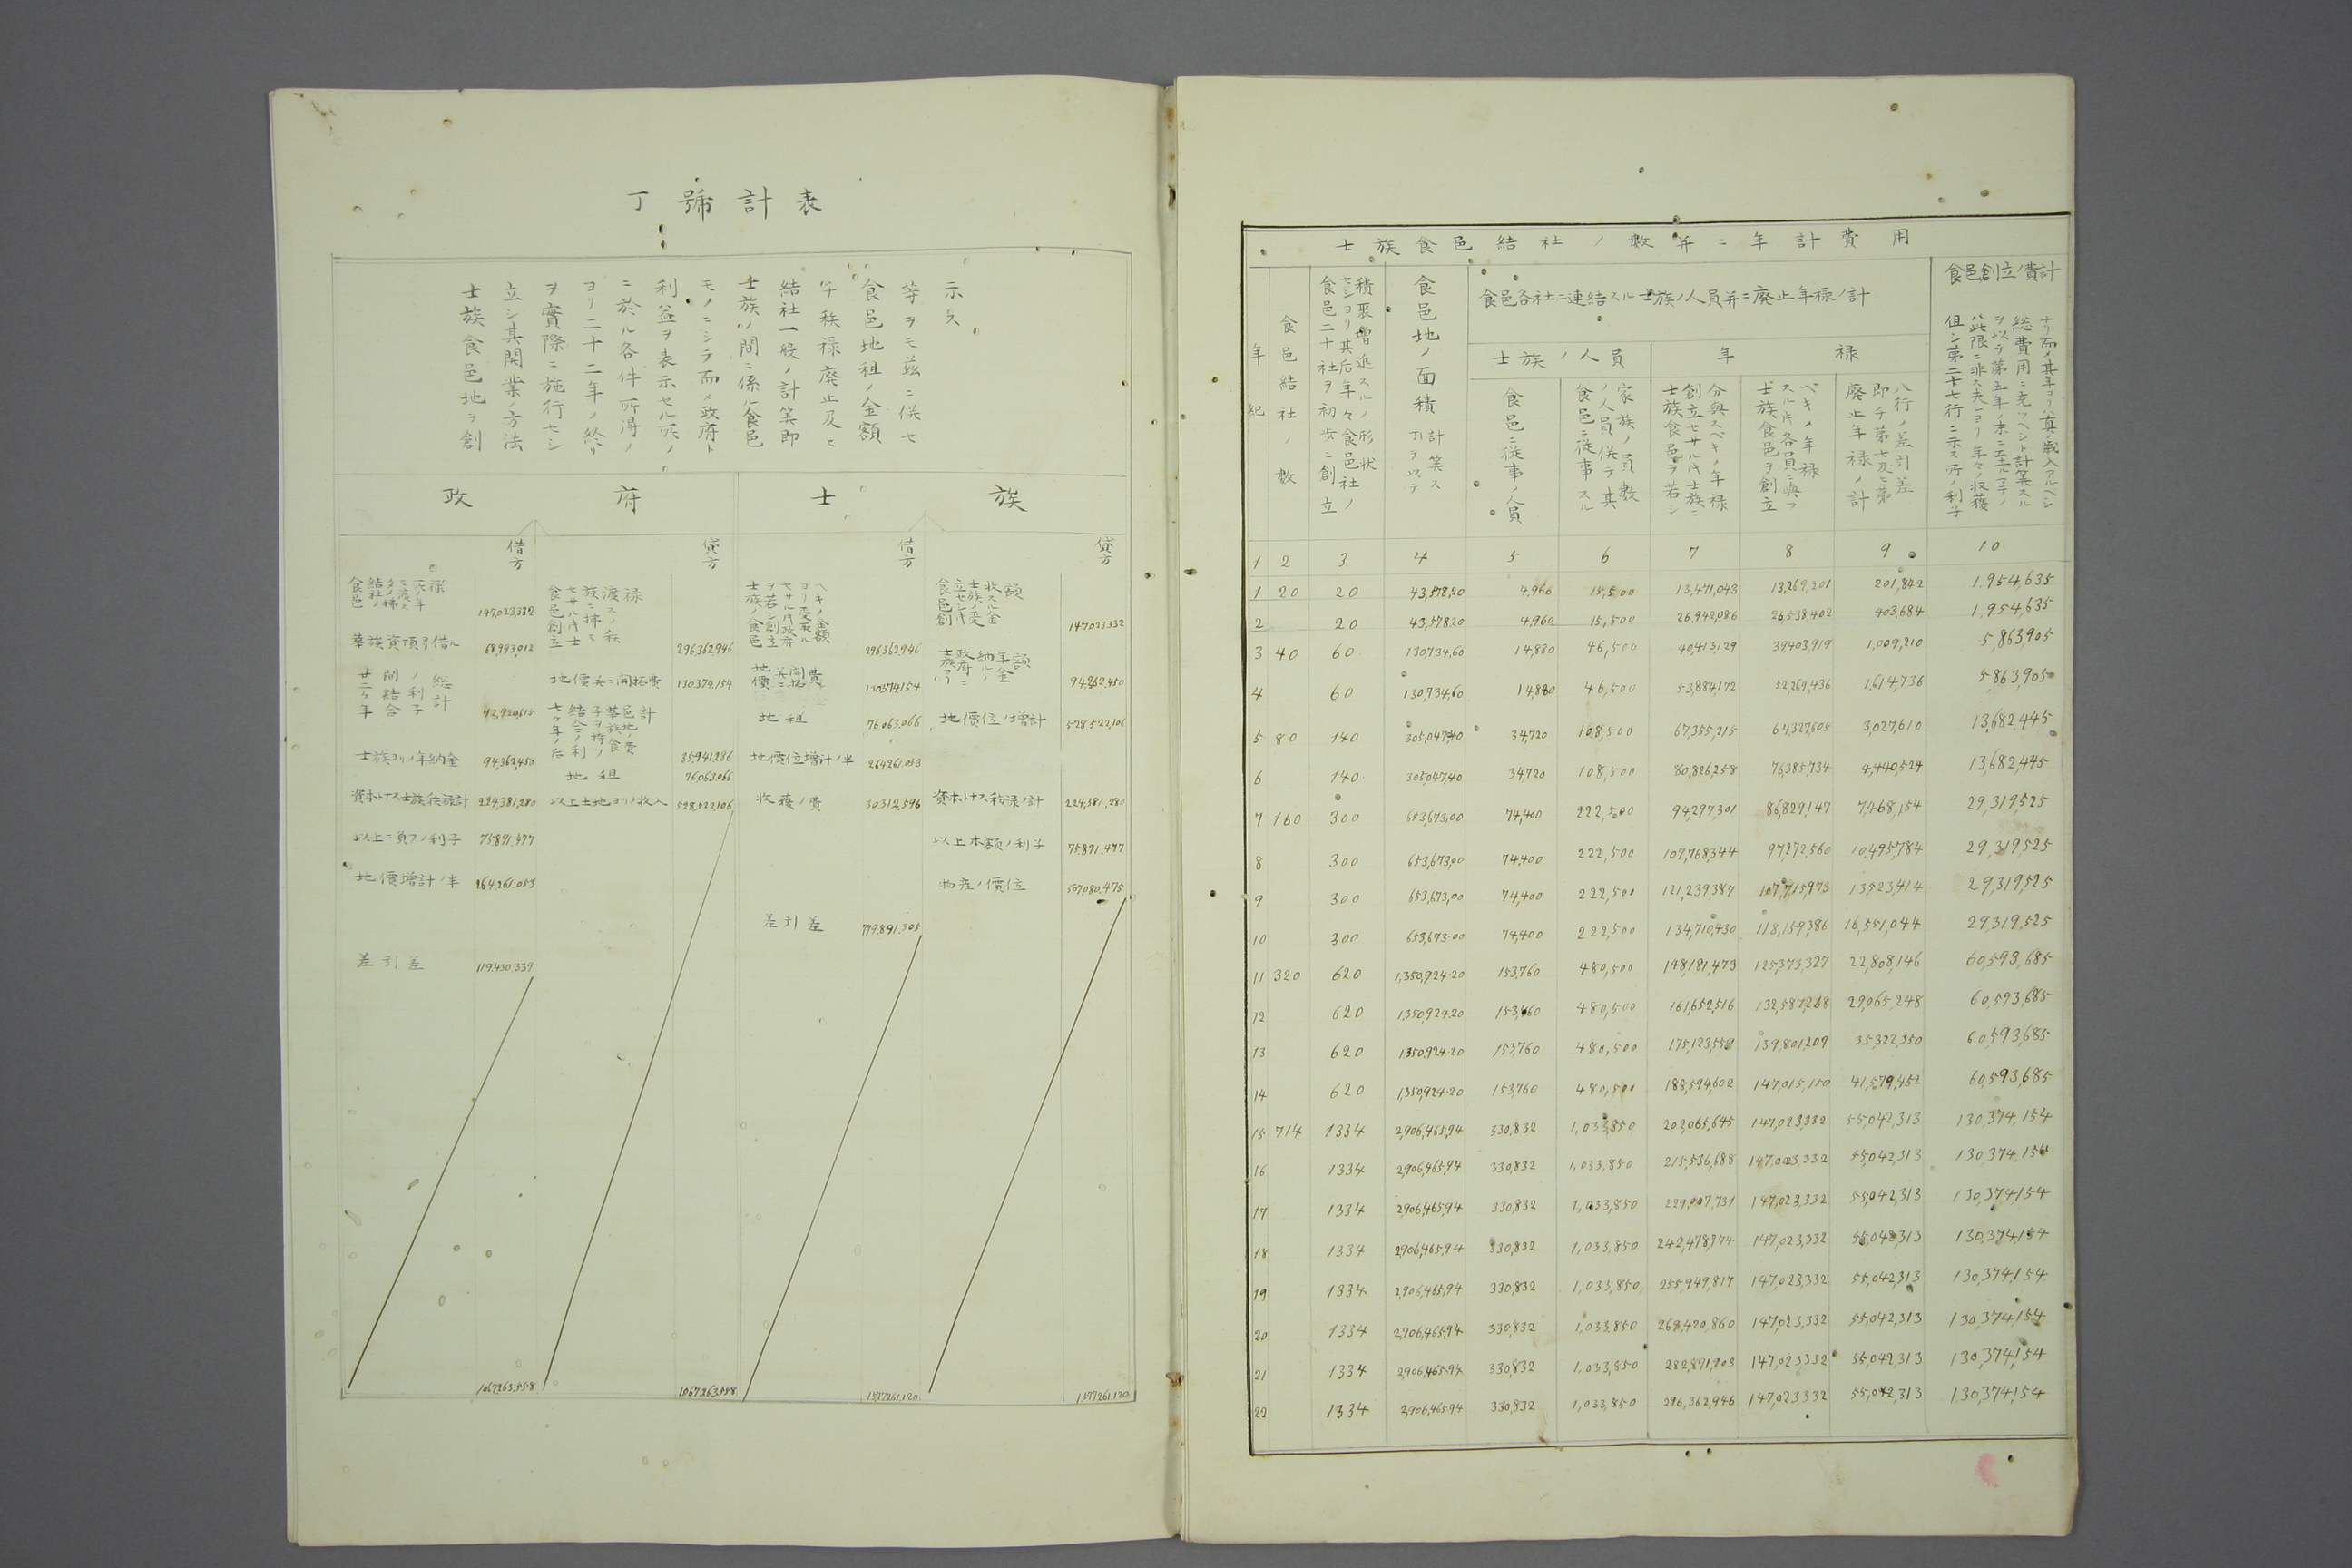 丁號計表
士族食邑地ヲ創
立シ其開業ノ方法
ヲ實際ニ施行セシ
ヨリ二十二年ノ終リ
ニ於ル各件所得ノ
利益ヲ表示セル所ノ
モノニシテ而メ政府ト
士族ノ間ニ係ル食邑
結社一般ノ計筭即
年秩禄廃止及ヒ
食邑地租ノ金額
等ヲモ茲ニ併セ
示ス
政府 士族
借方 貸方 借方 貸方
147,023,332
華族資頂引借ル 68,993,012
廿二ケ年間結合ノ利子総計 42,920,615
士族ヨリノ年納金 94,362,450
資本トナス士族秩禄計 224,381,280
以上ニ負フノ利子 75,891,477
地價増計ノ半 264,261,053
差引差 119,430,339
1067,263,558
296,362,946
地價并ニ開拓費 130,374,154
35,941,286
地租 76,063,066
以上土地ヨリノ收入 528,522,106
1067,263,558
296,362,946
地價并ニ開拓費 130,374,154
地租 76,063,066
地價位増計ノ半 264,261,053
收穫ノ費 30,312,596
差引差 779,891,305
1,577,261,120
147,023,332
士族政府ニ納ルノ年金額 94,362,450
地價位ノ増計 528,522,106
資本トナス秩禄ノ計 224,381,280
以上本額ノ利子 75,891,477
物産ノ價位 507,080,475
1,577,261,120
士族食邑結社ノ數并ニ年計費用
年紀
食邑結社ノ數
食邑二十社ヲ初歩ニ創立
セシヨリ其后年々食邑社ノ
積聚増進スルノ形状
食邑地ノ面積 丁ヲ以テ計筭ス
食邑各社ニ連結スル士族ノ人員并ニ廃止年禄ノ計
士族ノ人員
食邑ニ従事ノ人員
食邑ニ従事スル
ノ人員併テ其
家族ノ員數
年禄
士族食邑ヲ若シ
創立セサル片士族ニ
分與スベキノ年禄
士族食邑ヲ創立
スル片各員ニ與フ
ベキノ年禄
廃止年禄ノ計
即チ第七及ヒ第
八行ノ差計差
食邑創立ノ費計
但シ第二十七行ニ示ス所ノ利子
ハ此限ニ非ス夫レヨリ年々ノ収穫
ヲ以テ第五年ノ末ニ至ルマテノ
総費用ニ充ツヘシト計筭スル
ナリ而メ其年ヨリハ真ノ歳入アルヘシ
1 2 3 4 5 6 7 8 9 10
1 20 20 43,578,20 4,960 15,500 13,471,043 13,269,201 201,842 1,954,635
2 20 43,578,20 4,960 15,500 26,942,086 26,538,402 403,684 1,954,635
3 40 60 130,734,60 14,880 46,500 40,413,129 39,403,919 1,009,210 5,863,905
4 60 130,734,60 14,880 46,500 53,884,172 52,269,436 1,614,736 5,863,905
5 80 140 305,047,40 34,720 108,500 67,355,215 64,327,605 3,027,610 13,682,445
6 140 305,047,40 34,720 108,500 80,826,258 76,385,734 4,440,524 13,682,445
7 160 300 653,673,00 74,400 222,500 94,297,301 86,829,147 7,468,154 29,319,525
8 300 653,673,00 74,400 222,500 107,768,344 97,272,560 10,495,784 29,319,525
9 300 653,673,00 74,400 222,500 121,239,387 107,715,973 13,523,414 29,319,525
10 300 653,673.00 74,400 222,500 134,710,430 118,159,386 16,551,044 29,319,525
11 320 620 1,350,924.20 153,760 480,500 148,181,473 125,373,327 22,808,146 60,593,685
12 620 1,350,924.20 153,760 480,500 161,652,516 132,587,268 29,065,248 60,593,685
13 620 1,350,924.20 153,760 480,500 175,123,559 139,801,209 35,322,350 60,593,685
14 620 1,350,924.20 153,760 480,500 188,594,602 147,015,150 41,579,452 60,593,685
15 714 1334 2,906,465,94 330,832 1,033,850 202,065,645 147,023,332 55,042,313 130,374,154
16 1334 2,906,465,94 330,832 1,033,850 215,536,688 147,023,332 55,042,313 130,374,154
17 1334 2,906,465,94 330,832 1,033,850 229,007,731 147,023,332 55,042,313 130,374,154
18 1334 2,906,465,94 330,832 1,033,850 242,478,774 147,023,332 55,042,313 130,374,154
19 1334 2,906,465,94 330,832 1,033,850 255,949,817 147,023,332 55,042,313 130,374,154
20 1334 2,906,465,94 330,832 1,033,850 269,420,860 147,023,332 55,042,313 130,374,154
21 1334 2,906,465,94 330,832 1,033,850 282,891,903 147,023,332 55,042,313 130,374,154
22 1334 2,906,465,94 330,832 1,033,850 296,362,946 147,023,332 55,042,313 130,374,154